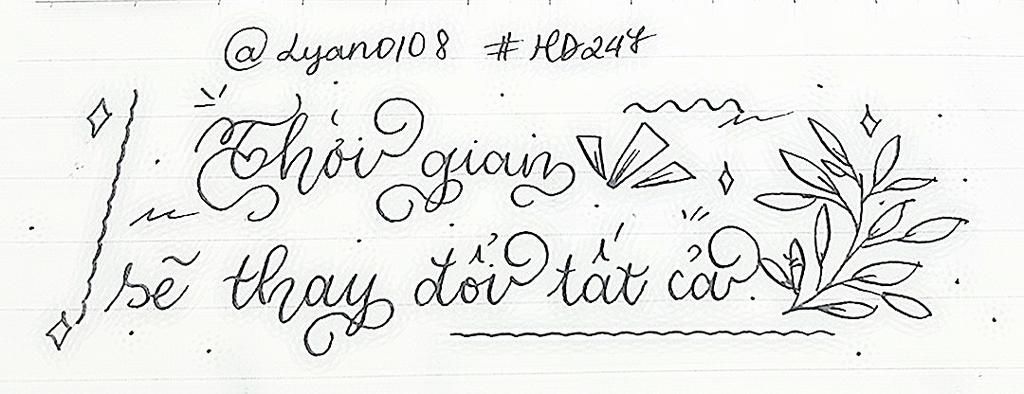 @Lyan0108 #HD247
Thời gian
sẽ thay đổi tất cả.